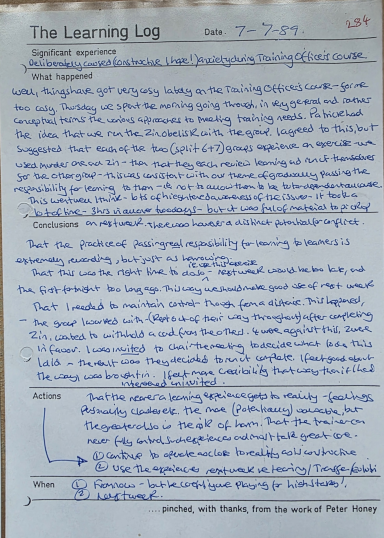 The Learning Log Date 7-7-89. 284
Significant experience
Deliberately caused (constructive I hope!) anxiety during Training Officer's course
What happened
Well, things have got very cosy lately on the Training Officer's course - for me
too easy. Thursday we spent the morning going through, in very general and rather
conceptual terms the various approaches to meeting training needs. Patrick had
the idea that we run the Zin obelisk with the group. I agreed to this, but
suggested that each of the two (split 6+7) groups experience an exercise - we
used murder one and Zin - then that they each review learning and run it themselves
for the other group - this was consistent with our theme of gradually passing the
responsibility for learning to them - ie not to allow them to be
This went well I think - lots of heightened awareness of the issues - it took a
lot of time - 3hrs in over two days - but it was full of material to pick up
on next week. There was however a distinct potential for conflict.
Conclusions
That the practice of passing real responsibility for learning to learners is
extremely rewarding, but just as
That this was the right time to do so - next week would be too late, and
to use this exercise
the first fortnight too long ago. This way we should make good use of next week
That I needed to maintain control - though from a distance. This happened,
- the group I worked with (kept out of their way throughout) after completing
Zin, wanted to withhold a card from the others. 4 were against this, 2 were
in favour. I was invited to chair the meeting to decide what to do. This
I did - the result was they decided to run it complete. I feel good about
the way I was brought in. I feel more credibility that way than if I had
intervened uninvited.
Actions
That the nearer a learning experience gets to reality - feelings
personality clashes etc. the more (potentially) valuable, but
the greater also is the risk of harm. That the trainer can
never fully control such experiences and must take great care.
① Continue to operate as close to reality as is constructive
② Use the experience next week re learning/Transfer
When ① From now - but be careful you're playing for high stakes!
② Next week.
.... pinched, with thanks, from the work of Peter Honey